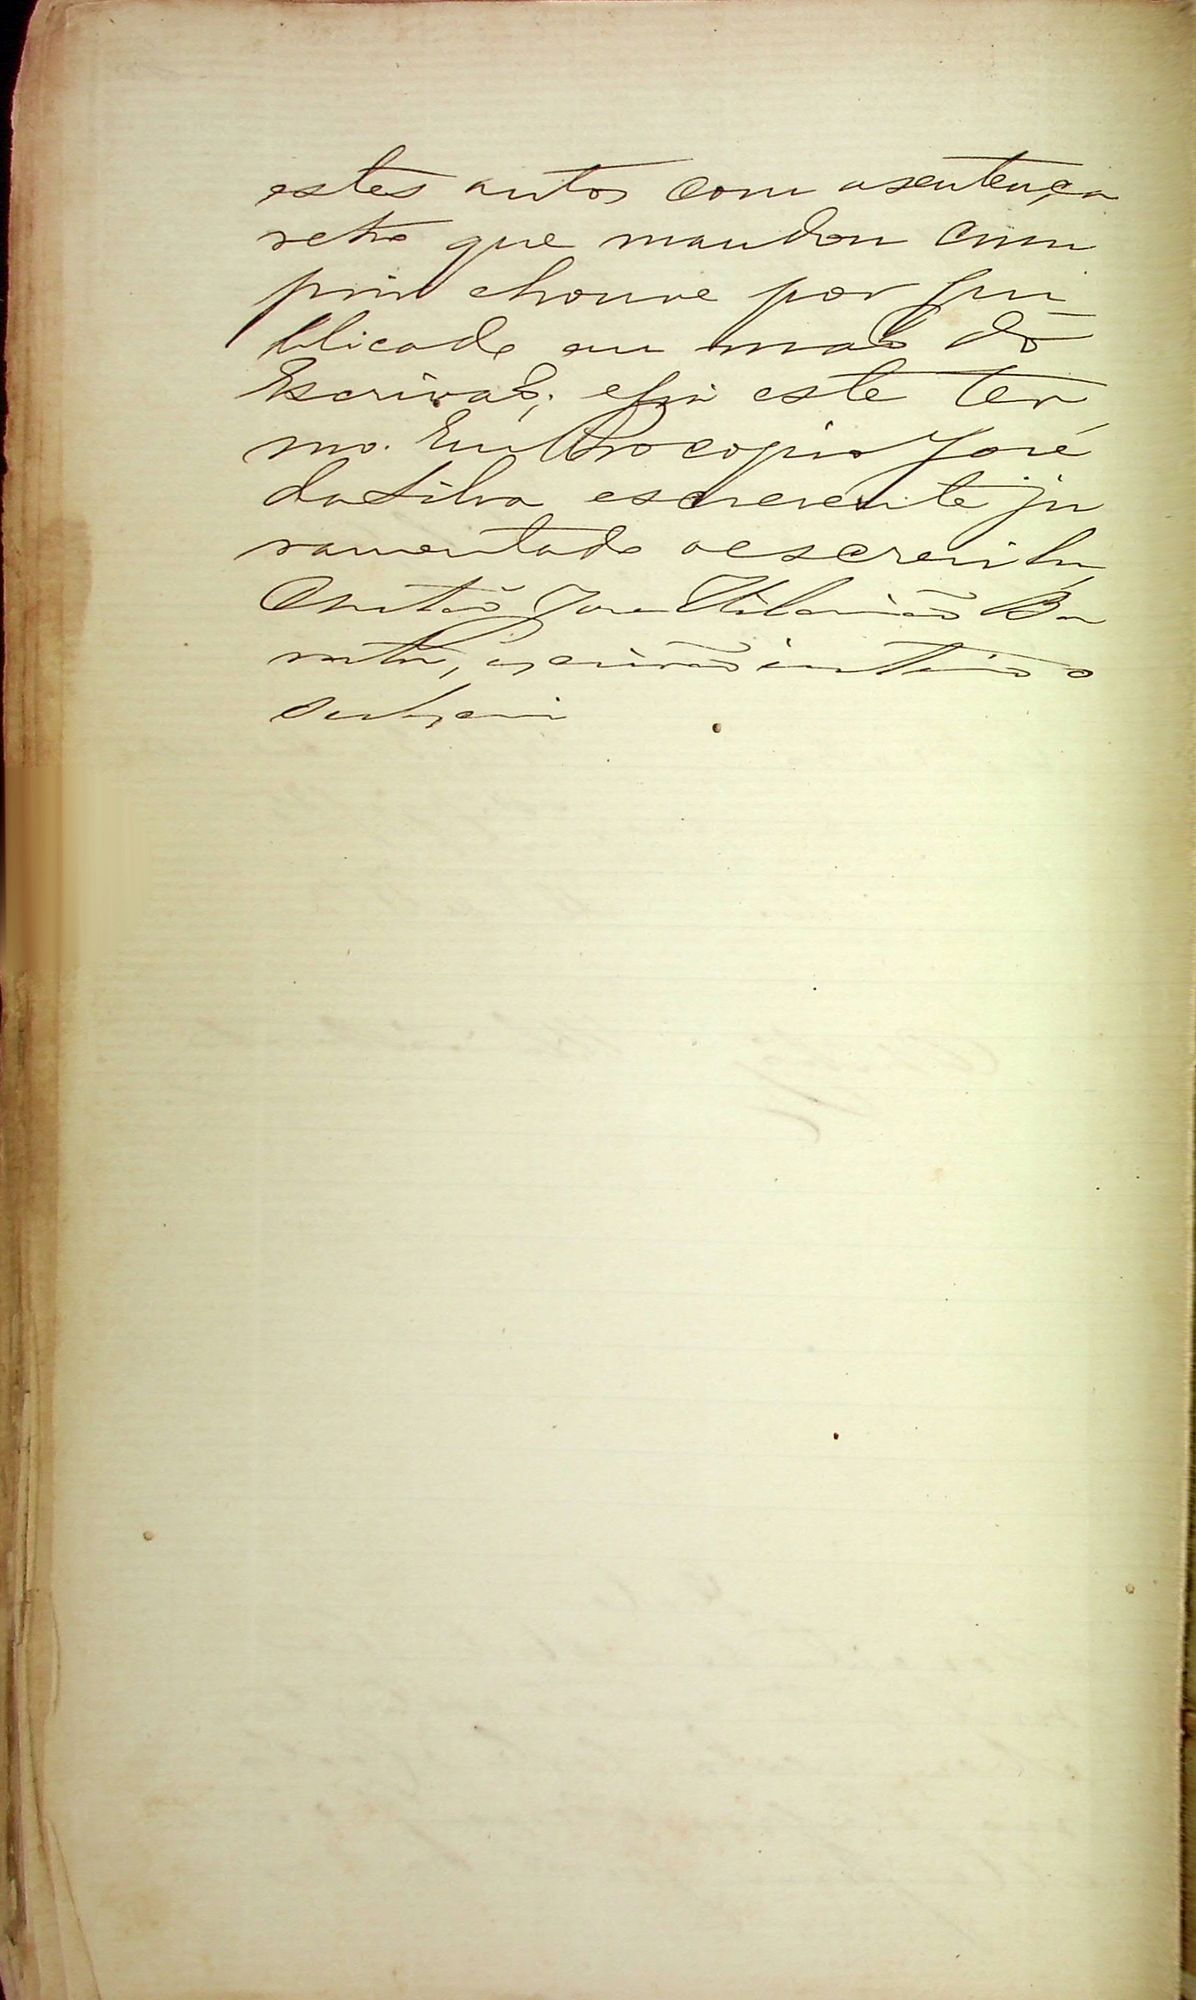 estes autos com asentença
retro que mandou cum
prir ehouve por pu
blicada em maõ do
Escrivaõ; efiz este ter
mo. Eu Procopio José
da Silva escrevente ju
ramentado oescrevi. Eu
Christão José Hilarião Ba
escrivão interino o
subscrevi